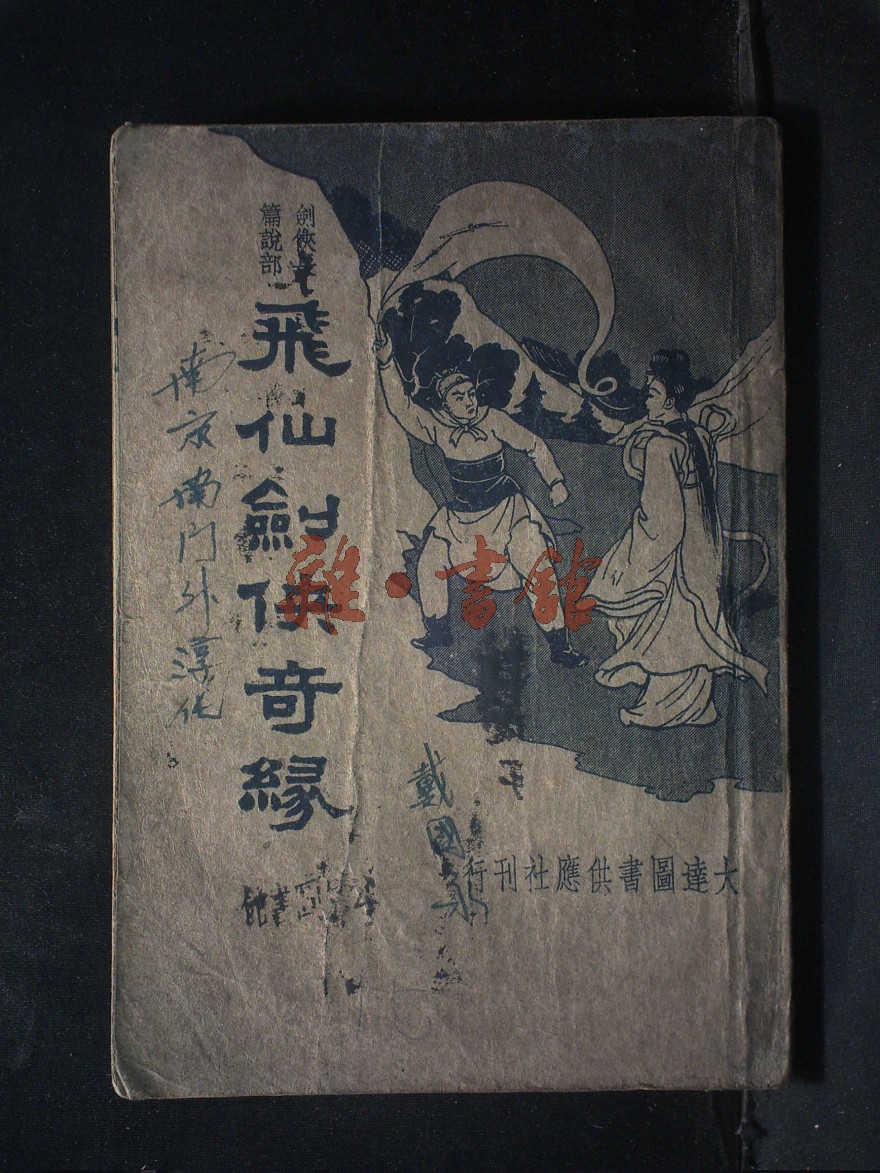 劍俠長
篇說部
飛仙劍俠奇緣
南京南門外淳化
戴國
大達圖書供應社刊行
雜·書館